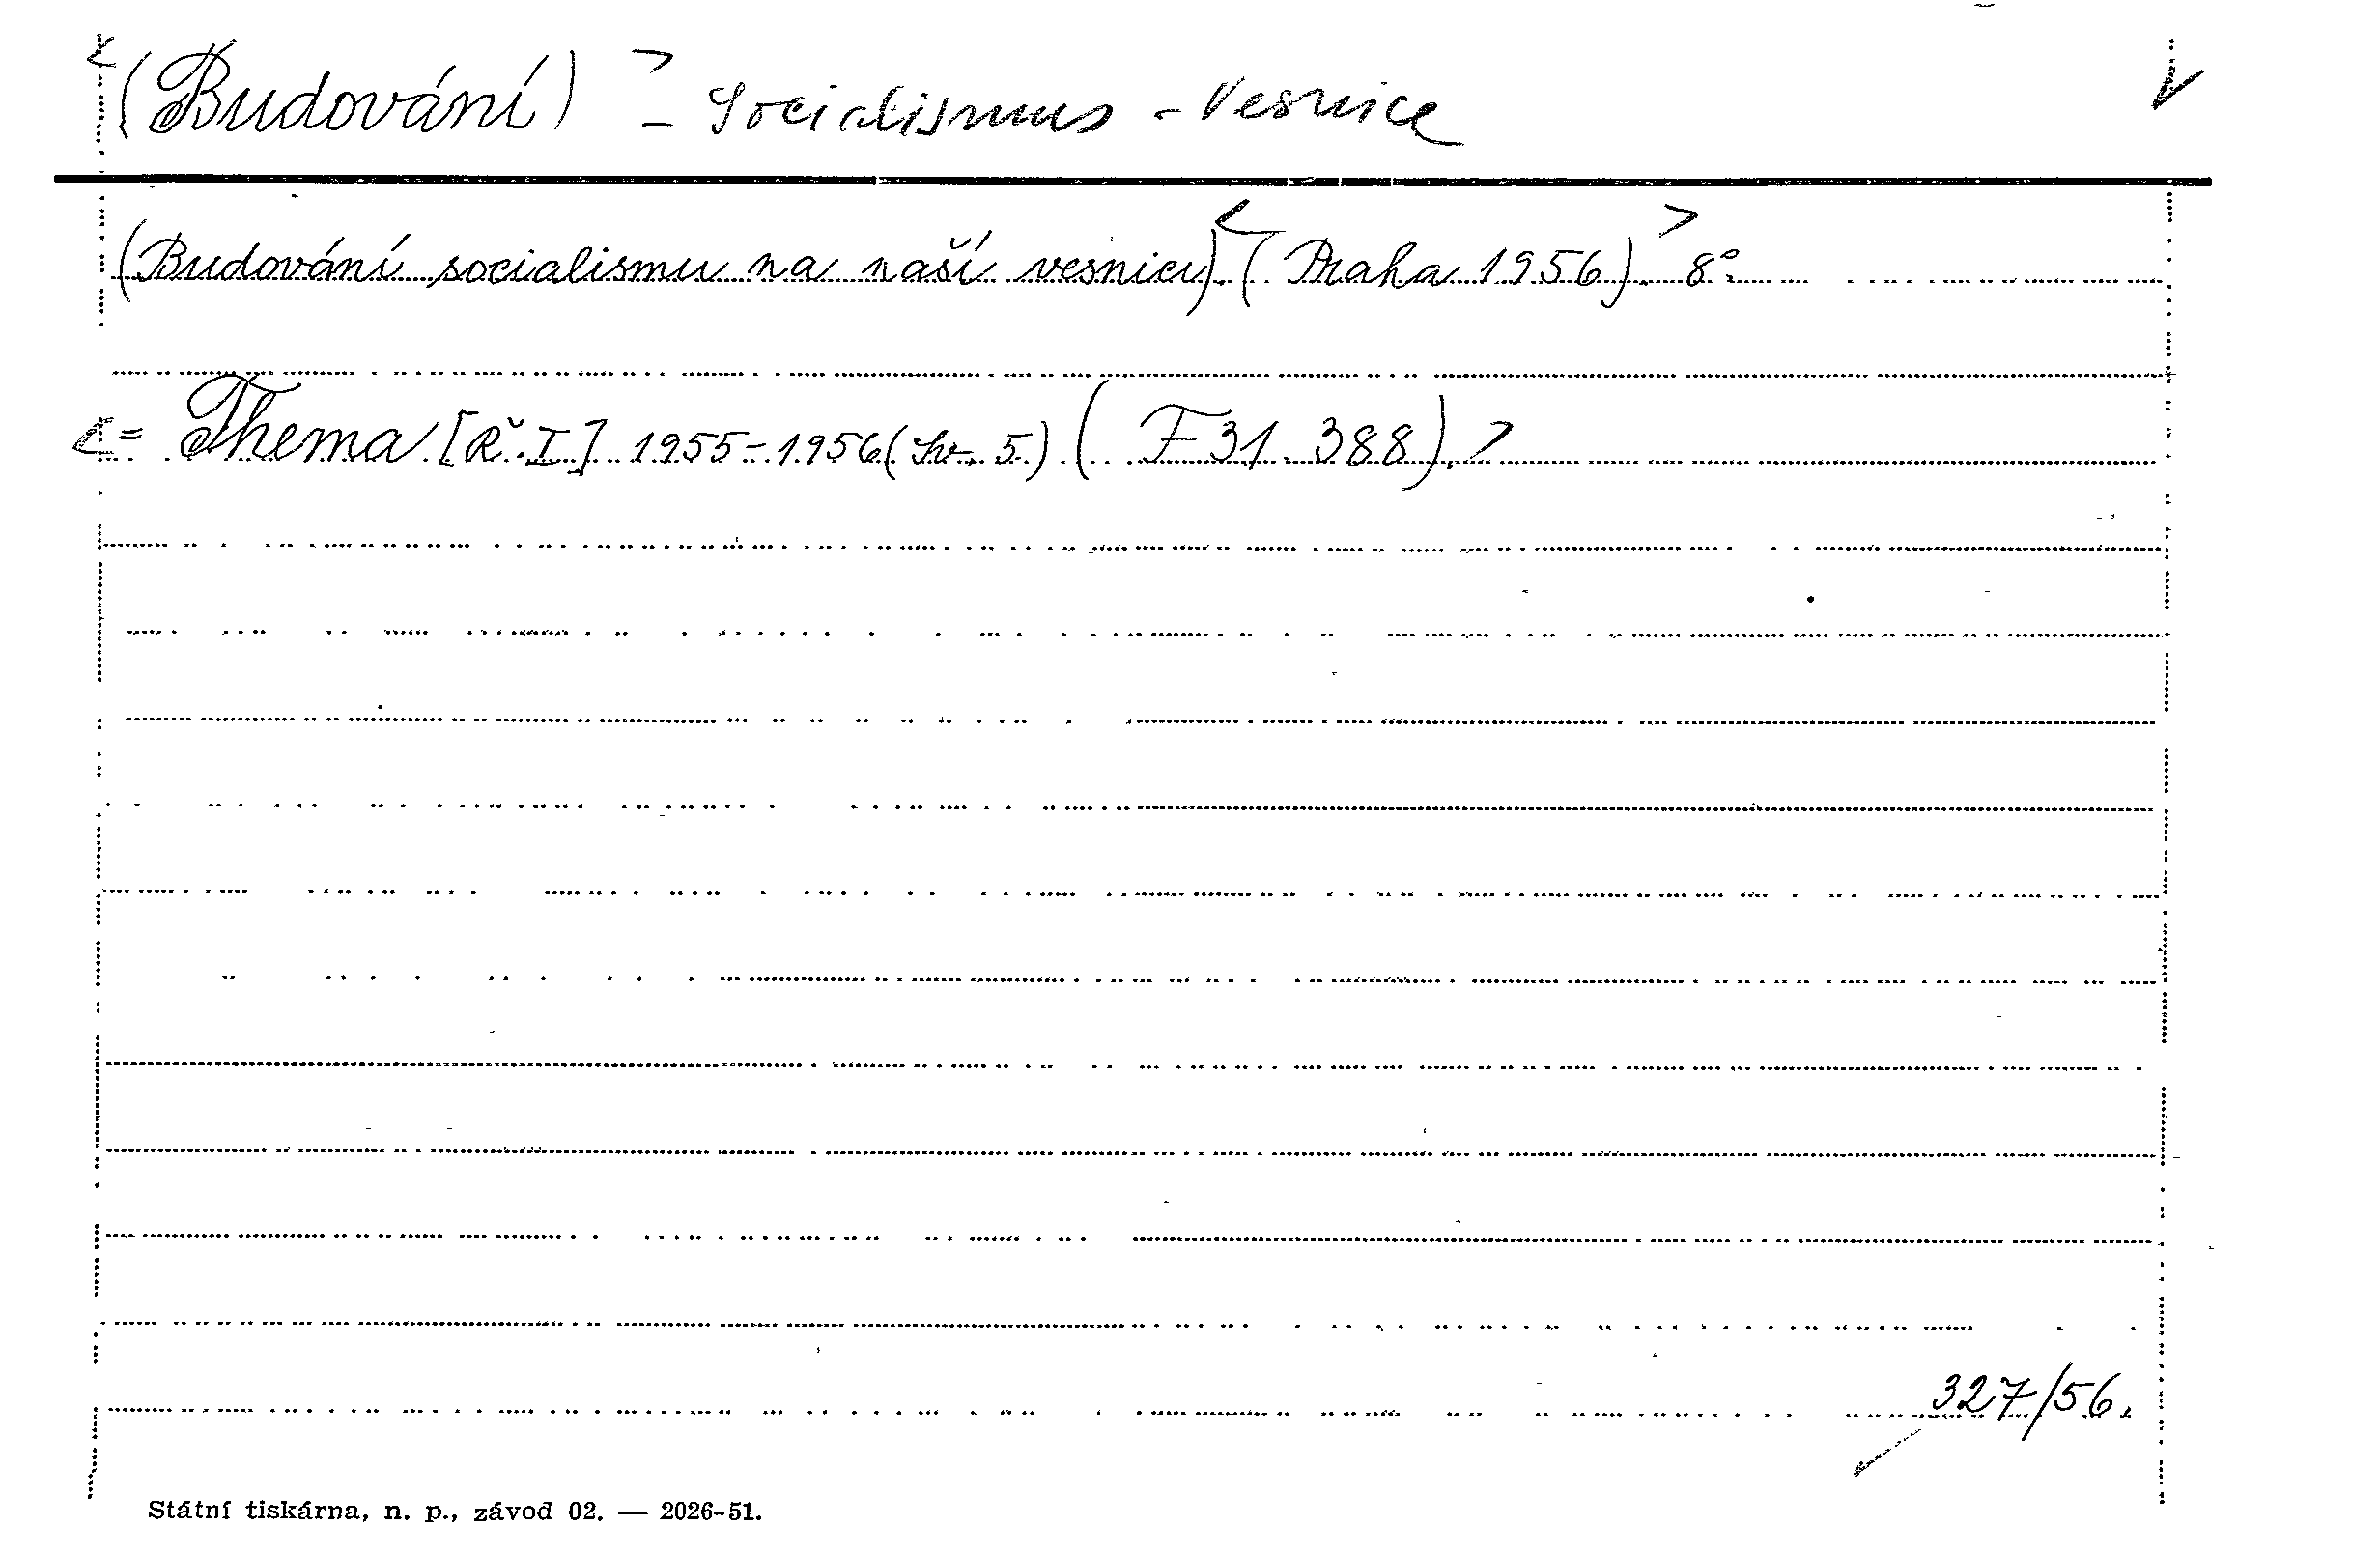 <(Budování)> - Socialismus - Vesnice
(Budování socialismu na naší vesnici). <(Praha 1956).> 8°.
<= Thema [Ř. I] 1955-1956 (Sv. 5) (F 31.388).>
327/56.
Státní tiskárna, n. p., závod 02. — 2026-51.